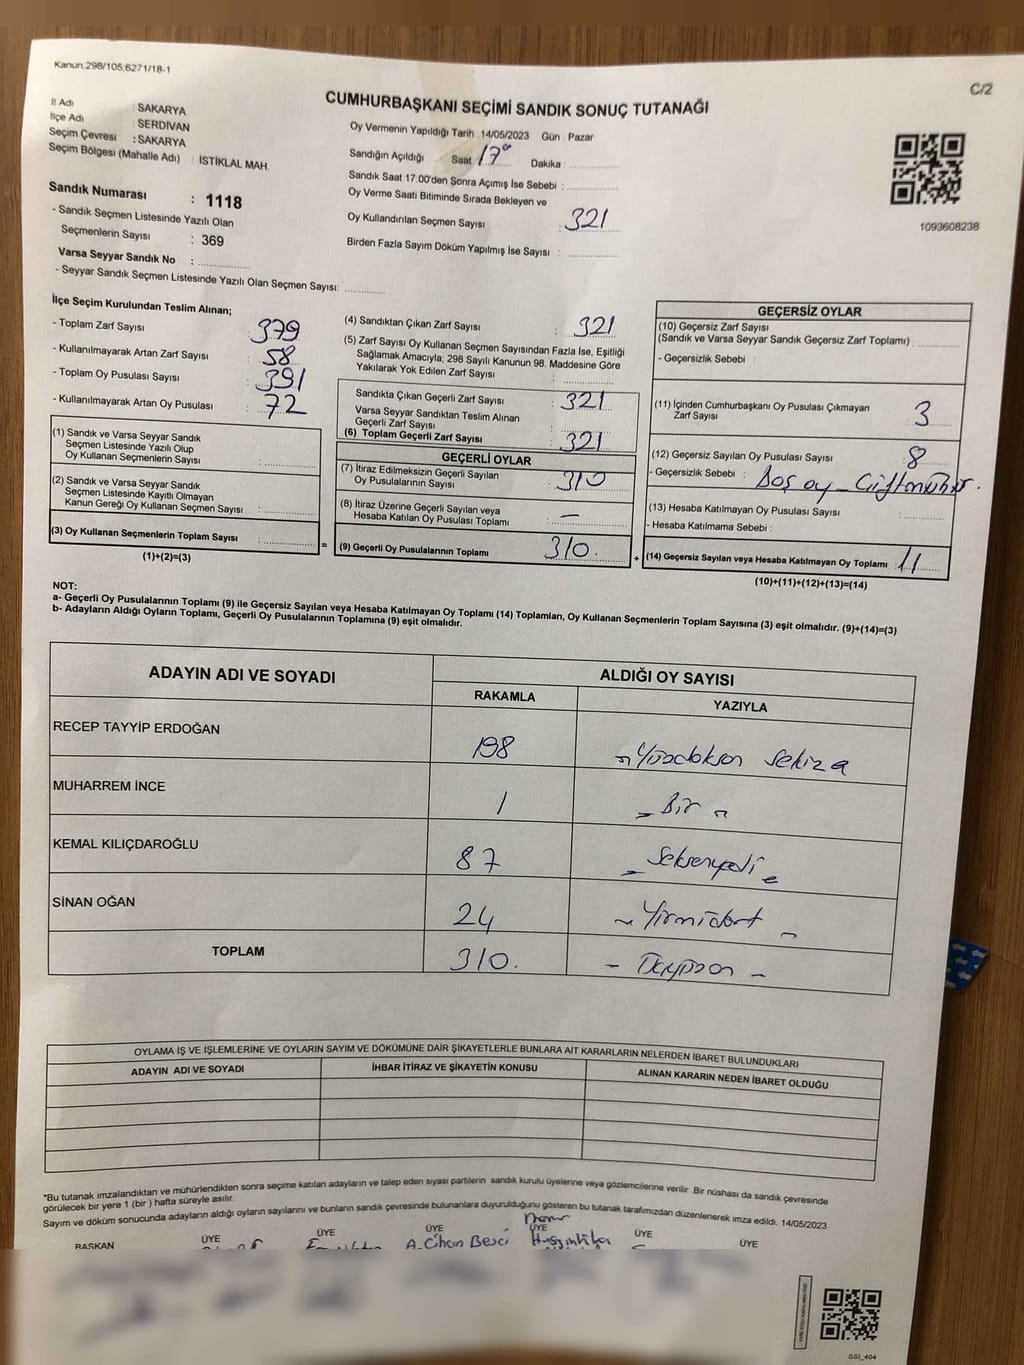 Kanun:298/105;6271/18-1
C/2
CUMHURBAŞKANI SEÇİMİ SANDIK SONUÇ TUTANAĞI
İl Adı : SAKARYA
İlçe Adı : SERDİVAN
Seçim Çevresi : SAKARYA
Seçim Bölgesi (Mahalle Adı) : İSTİKLAL MAH.
Sandık Numarası : 1118
- Sandık Seçmen Listesinde Yazılı Olan
Seçmenlerin Sayısı : 369
Varsa Seyyar Sandık No :
- Seyyar Sandık Seçmen Listesinde Yazılı Olan Seçmen Sayısı:
Oy Vermenin Yapıldığı Tarih : 14/05/2023 Gün : Pazar
Sandığın Açıldığı Saat : 17⁰⁰ Dakika :
Sandık Saat 17:00'den Sonra Açımış İse Sebebi :
Oy Verme Saati Bitiminde Sırada Bekleyen ve
Oy Kullandırılan Seçmen Sayısı : 321
Birden Fazla Sayım Döküm Yapılmış İse Sayısı :
1093608238
İlçe Seçim Kurulundan Teslim Alınan;
- Toplam Zarf Sayısı : 379
- Kullanılmayarak Artan Zarf Sayısı : 58
- Toplam Oy Pusulası Sayısı : 391
- Kullanılmayarak Artan Oy Pusulası : 72
(1) Sandık ve Varsa Seyyar Sandık
Seçmen Listesinde Yazılı Olup
Oy Kullanan Seçmenlerin Sayısı :
(2) Sandık ve Varsa Seyyar Sandık
Seçmen Listesinde Kayıtlı Olmayan
Kanun Gereği Oy Kullanan Seçmen Sayısı :
(3) Oy Kullanan Seçmenlerin Toplam Sayısı :
(1)+(2)=(3)
=
(4) Sandıktan Çıkan Zarf Sayısı : 321
(5) Zarf Sayısı Oy Kullanan Seçmen Sayısından Fazla İse, Eşitliği
Sağlamak Amacıyla; 298 Sayılı Kanunun 98. Maddesine Göre
Yakılarak Yok Edilen Zarf Sayısı :
Sandıkta Çıkan Geçerli Zarf Sayısı : 321
Varsa Seyyar Sandıktan Teslim Alınan
Geçerli Zarf Sayısı :
(6) Toplam Geçerli Zarf Sayısı : 321
GEÇERLİ OYLAR
(7) İtiraz Edilmeksizin Geçerli Sayılan
Oy Pusulalarının Sayısı : 310
(8) İtiraz Üzerine Geçerli Sayılan veya
Hesaba Katılan Oy Pusulası Toplamı : —
(9) Geçerli Oy Pusulalarının Toplamı 310.
+
GEÇERSİZ OYLAR
(10) Geçersiz Zarf Sayısı
(Sandık ve Varsa Seyyar Sandık Geçersiz Zarf Toplamı) :
- Geçersizlik Sebebi :
(11) İçinden Cumhurbaşkanı Oy Pusulası Çıkmayan
Zarf Sayısı : 3
(12) Geçersiz Sayılan Oy Pusulası Sayısı : 8
- Geçersizlik Sebebi : Boş oy - Çift mühür.
(13) Hesaba Katılmayan Oy Pusulası Sayısı :
- Hesaba Katılmama Sebebi :
(14) Geçersiz Sayılan veya Hesaba Katılmayan Oy Toplamı : 11
(10)+(11)+(12)+(13)=(14)
NOT:
a- Geçerli Oy Pusulalarının Toplamı (9) ile Geçersiz Sayılan veya Hesaba Katılmayan Oy Toplamı (14) Toplamları, Oy Kullanan Seçmenlerin Toplam Sayısına (3) eşit olmalıdır. (9)+(14)=(3)
b- Adayların Aldığı Oyların Toplamı, Geçerli Oy Pusulalarının Toplamına (9) eşit olmalıdır.
ADAYIN ADI VE SOYADI ALDIĞI OY SAYISI
RAKAMLA YAZIYLA
RECEP TAYYİP ERDOĞAN 198 Yüzdoksan Sekiz
MUHARREM İNCE 1 - Bir -
KEMAL KILIÇDAROĞLU 87 - Seksenyedi -
SİNAN OĞAN 24 - Yirmidört -
TOPLAM 310. - Üçyüzon -
OYLAMA İŞ VE İŞLEMLERİNE VE OYLARIN SAYIM VE DÖKÜMÜNE DAİR ŞİKAYETLERLE BUNLARA AİT KARARLARIN NELERDEN İBARET BULUNDUKLARI
ADAYIN ADI VE SOYADI İHBAR İTİRAZ VE ŞİKAYETİN KONUSU ALINAN KARARIN NEDEN İBARET OLDUĞU
*Bu tutanak imzalandıktan ve mühürlendikten sonra seçime katılan adayların ve talep eden siyasi partilerin sandık kurulu üyelerine veya gözlemcilerine verilir. Bir nüshası da sandık çevresinde
görülecek bir yere 1 (bir ) hafta süreyle asılır.
Sayım ve döküm sonucunda adayların aldığı oyların sayılarını ve bunların sandık çevresinde bulunanlara duyurulduğunu gösteren bu tutanak tarafımızdan düzenlenerek imza edildi. 14/05/2023
BAŞKAN ÜYE ÜYE ÜYE ÜYE ÜYE ÜYE
A. Cihan
SSI_404